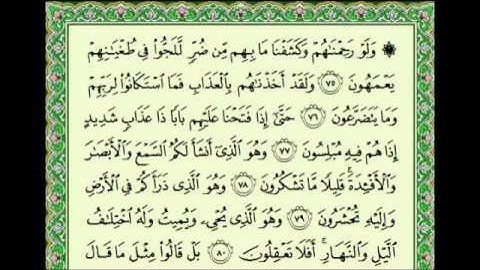 ۞ وَلَوْ رَحِمْنَٰهُمْ وَكَشَفْنَا مَا بِهِم مِّن ضُرٍّ لَّلَجُّوا۟ فِى طُغْيَٰنِهِمْ
يَعْمَهُونَ ٧٥ وَلَقَدْ أَخَذْنَٰهُم بِٱلْعَذَابِ فَمَا ٱسْتَكَانُوا۟ لِرَبِّهِمْ
وَمَا يَتَضَرَّعُونَ ٧٦ حَتَّىٰٓ إِذَا فَتَحْنَا عَلَيْهِم بَابًا ذَا عَذَابٍ شَدِيدٍ
إِذَا هُمْ فِيهِ مُبْلِسُونَ ٧٧ وَهُوَ ٱلَّذِىٓ أَنشَأَ لَكُمُ ٱلسَّمْعَ وَٱلْأَبْصَٰرَ
وَٱلْأَفْـِٔدَةَ ۚ قَلِيلًا مَّا تَشْكُرُونَ ٧٨ وَهُوَ ٱلَّذِى ذَرَأَكُمْ فِى ٱلْأَرْضِ
وَإِلَيْهِ تُحْشَرُونَ ٧٩ وَهُوَ ٱلَّذِى يُحْىِۦ وَيُمِيتُ وَلَهُ ٱخْتِلَٰفُ
ٱلَّيْلِ وَٱلنَّهَارِ ۚ أَفَلَا تَعْقِلُونَ ٨٠ بَلْ قَالُوا۟ مِثْلَ مَا قَالَ